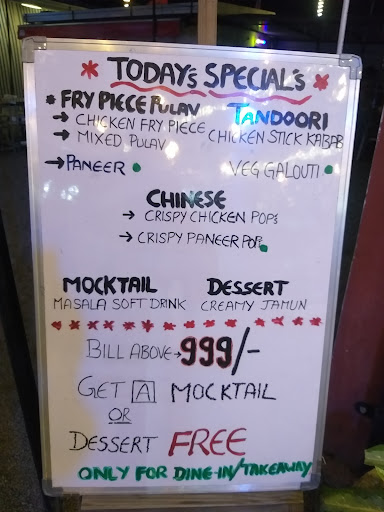 * TODAY'S SPECIAL'S *
* FRY PIECE PULAV
→ CHICKEN FRY PIECE
→ MIXED PULAV
→ PANEER
TANDOORI
CHICKEN STICK KABAB
VEG GALOUTI
CHINESE
→ CRISPY CHICKEN POPS
→ CRISPY PANEER POPS
MOCKTAIL
MASALA SOFT DRINK
DESSERT
CREAMY JAMUN
BILL ABOVE → 999/-
GET A MOCKTAIL
OR
DESSERT FREE
ONLY FOR DINE-IN/TAKEAWAY